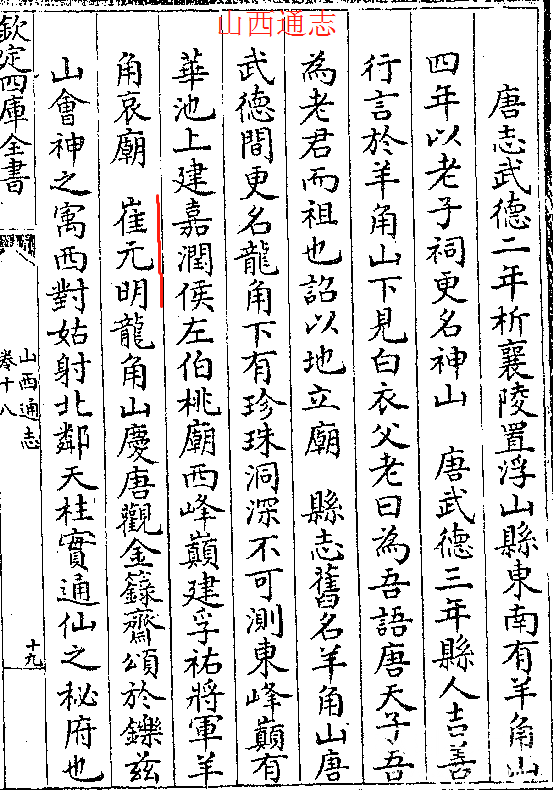 山西通志
唐志武德二年析襄陵置浮山縣東南有羊角山
四年以老子祠更名神山　唐武德三年縣人吉善
行言於羊角山下見白衣父老曰為吾語唐天子吾
為老君而祖也詔以地立廟　縣志舊名羊角山唐
武德間更名龍角下有珍珠洞深不可測東峰巔有
華池上建嘉潤侯左伯桃廟西峰巔建孚祐將軍羊
角哀廟　崔元明龍角山慶唐觀金籙齋頌於鑠茲
山會神之寓西對姑射北鄰天柱實通仙之秘府也
欽定四庫全書
山西通志
卷十八
十九